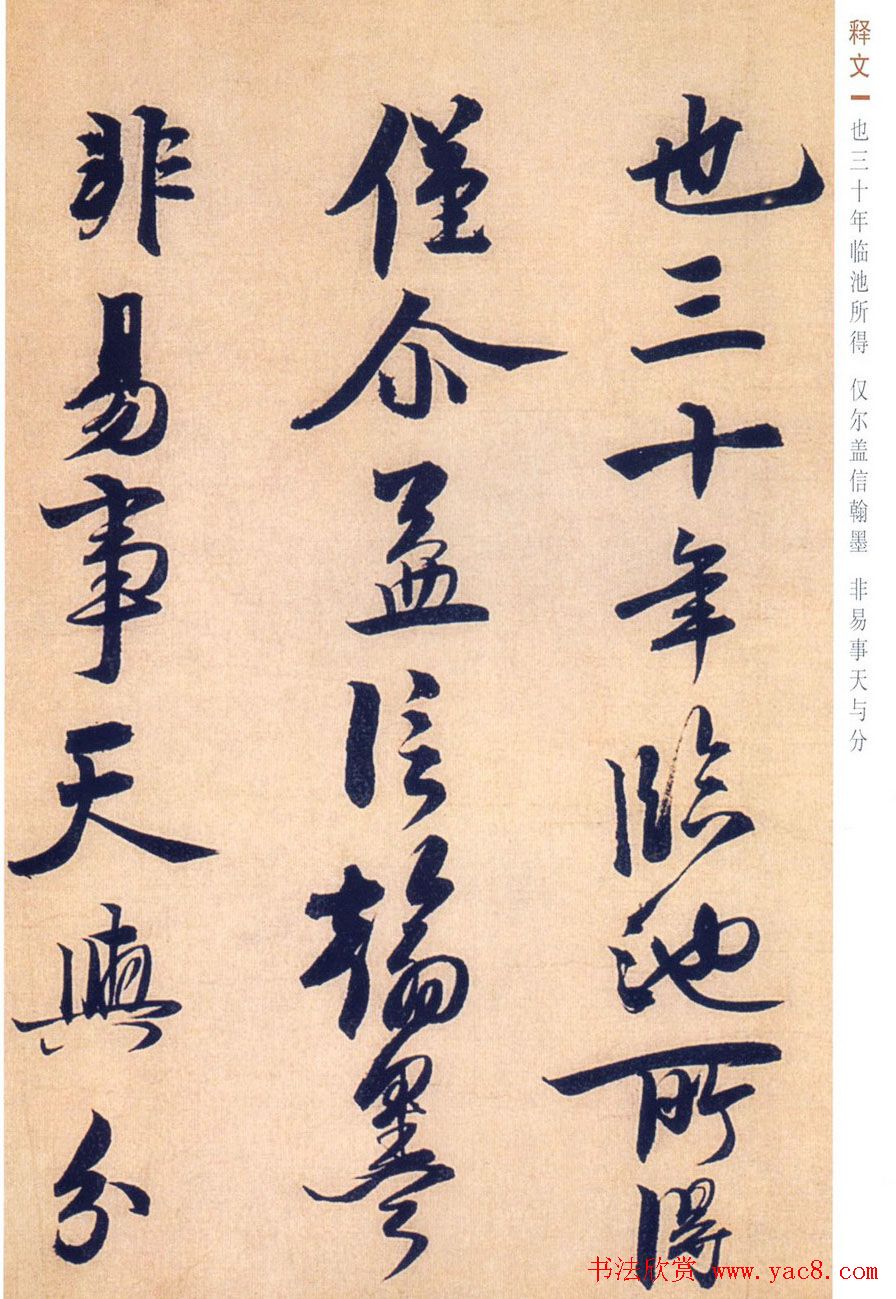 释文 也三十年临池所得 仅尔盖信翰墨 非易事天与分
也三十年臨池所得
僅尒盖信翰墨
非易事天與分
书法欣赏 www.yac8.com